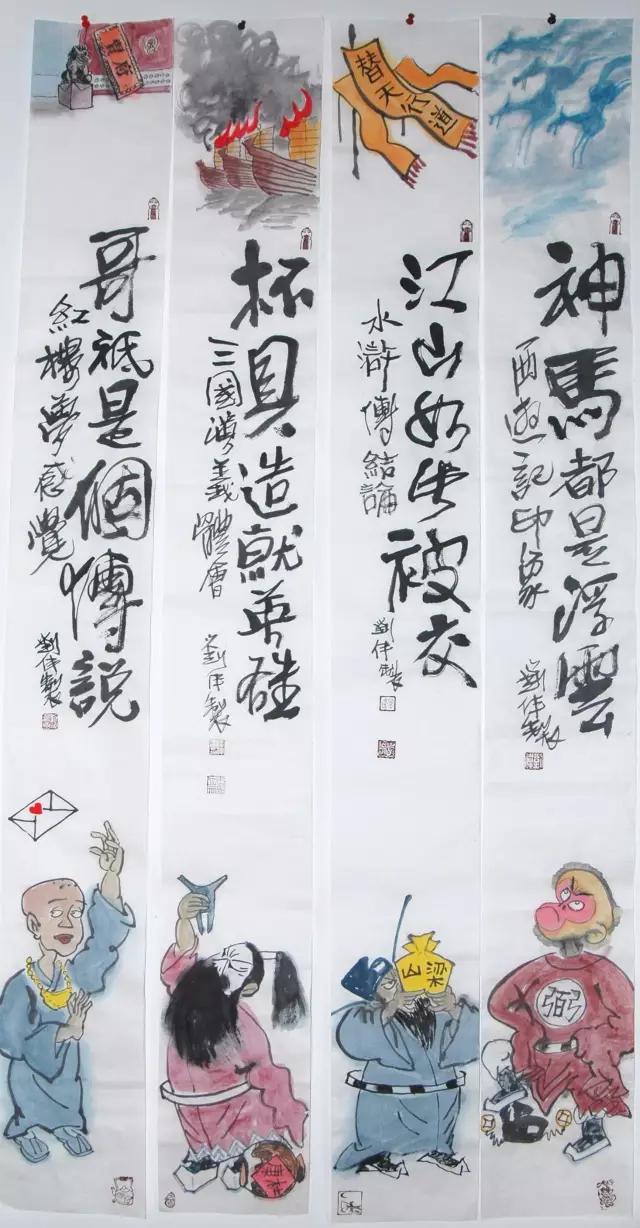 神馬都是浮雲
西遊記印象
劉伟製
弼
替天行道
江山如此被交
水滸傳結論
劉伟製
梁山
杯具造就英雄
三國演義體會
劉伟製
賈府
哥祗是個傳説
紅樓夢感覺
劉伟製